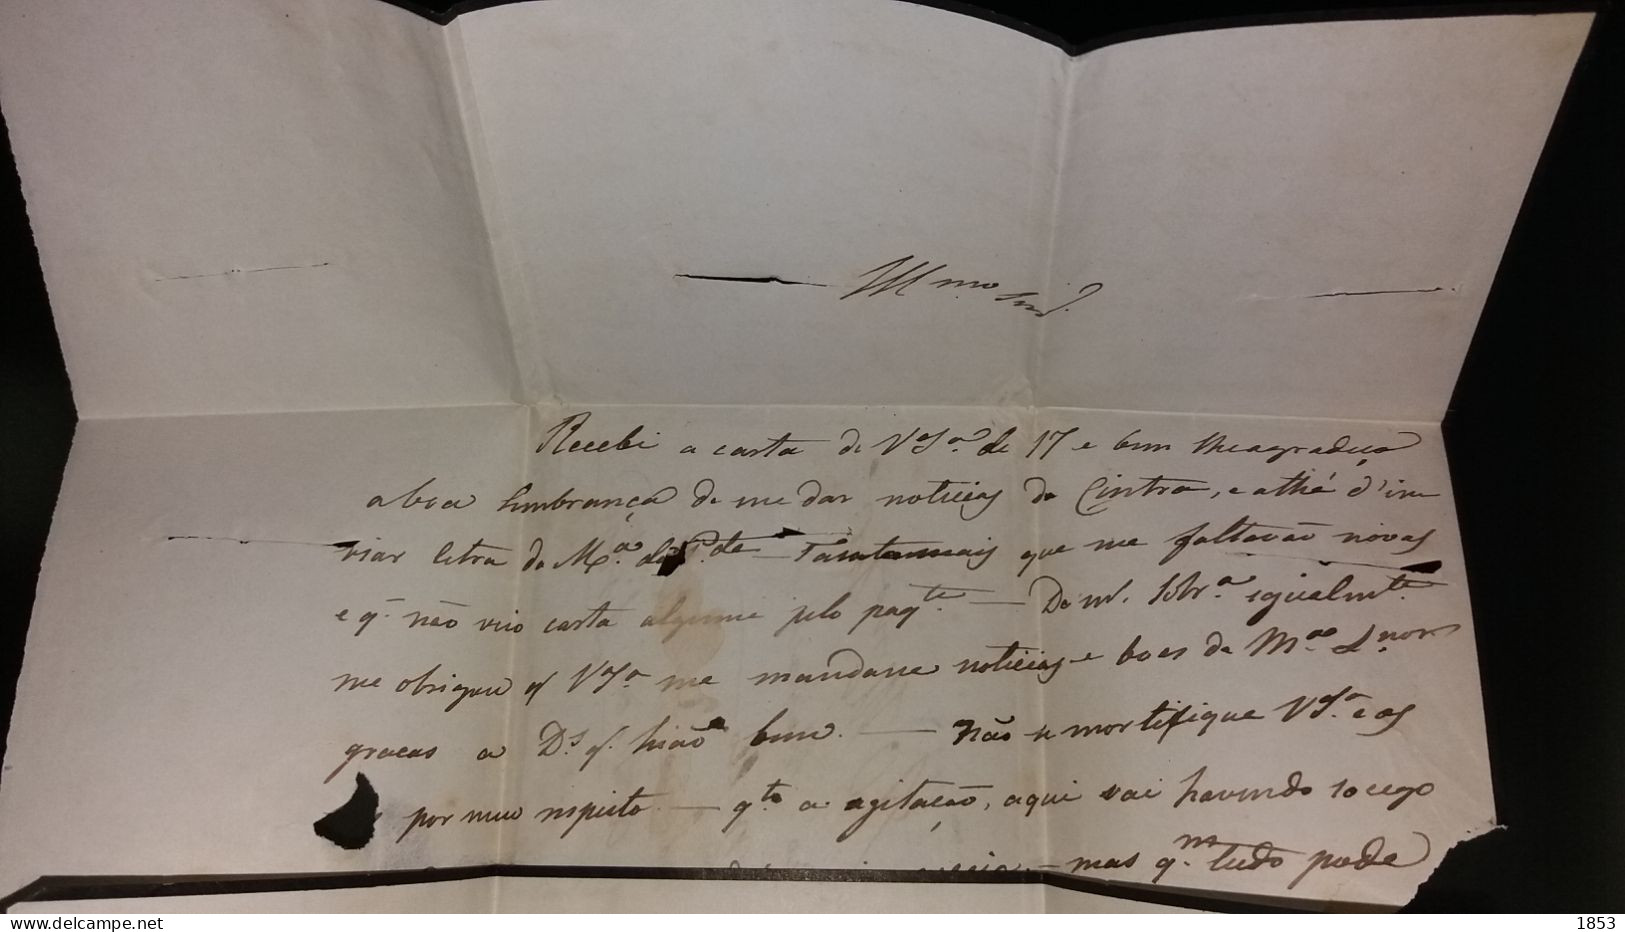 Mmo Snr.
Recebi a carta de VSª. de 17 e bem lhe agradeço
a boa lembrança de me dar noticias de Cintra, e athé d'in
viar letra da Mª. que me faltavão novas
e q. não veio carta alguma pelo paqte. — De m. Sobrª. igualmte.
me obrigou q VSª me mandasse noticias e boas de
graças a Ds. q. hião bem. — Não se mortifique VSª. e as
por meu respeito — qto a agitação, aqui vai havendo socego
— mas qm. tudo pode
delcampe.net
1853